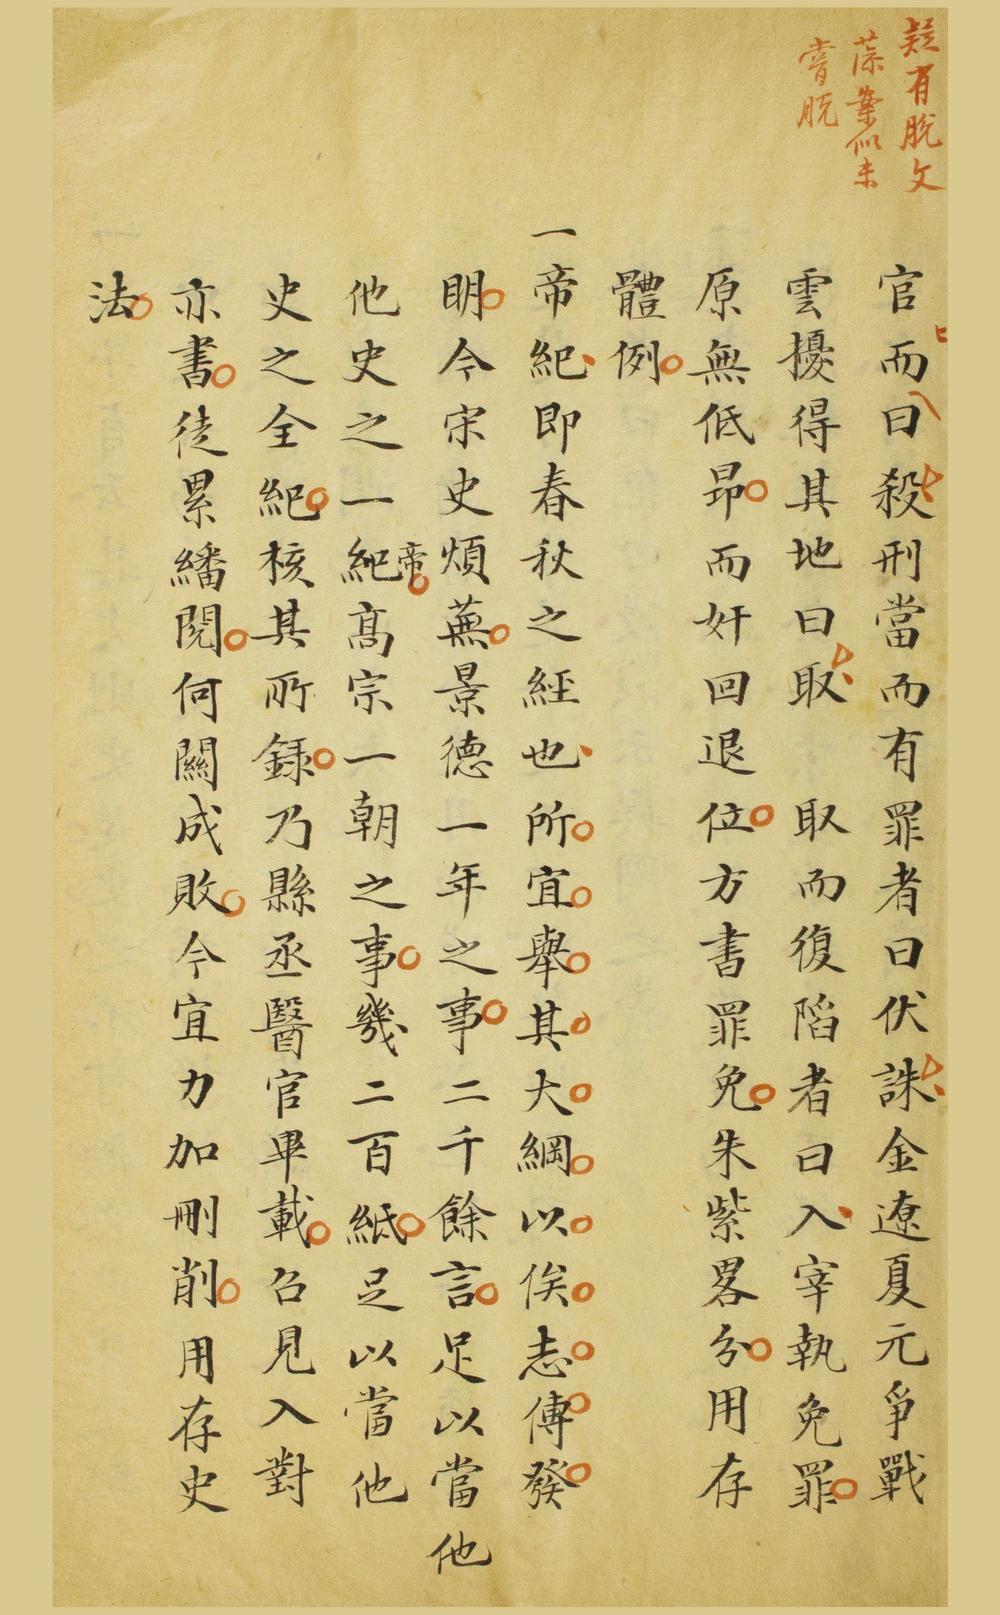 疑有脫文
葆案似未
嘗脫
官而曰殺刑當而有罪者曰伏誅金遼夏元爭戰
雲擾得其地曰取 取而復陷者曰入宰執免罪
原無低昂而奸回退位方書罪免朱紫畧分用存
體例
一帝紀即春秋之經也所宜舉其大綱以俟志傳發
明今宋史煩蕪景德一年之事二千餘言足以當他
他史之一帝紀高宗一朝之事幾二百紙足以當他
史之全紀核其所錄乃縣丞醫官畢載召見入對
亦書徒累繙閱何關成敗今宜力加刪削用存史
法